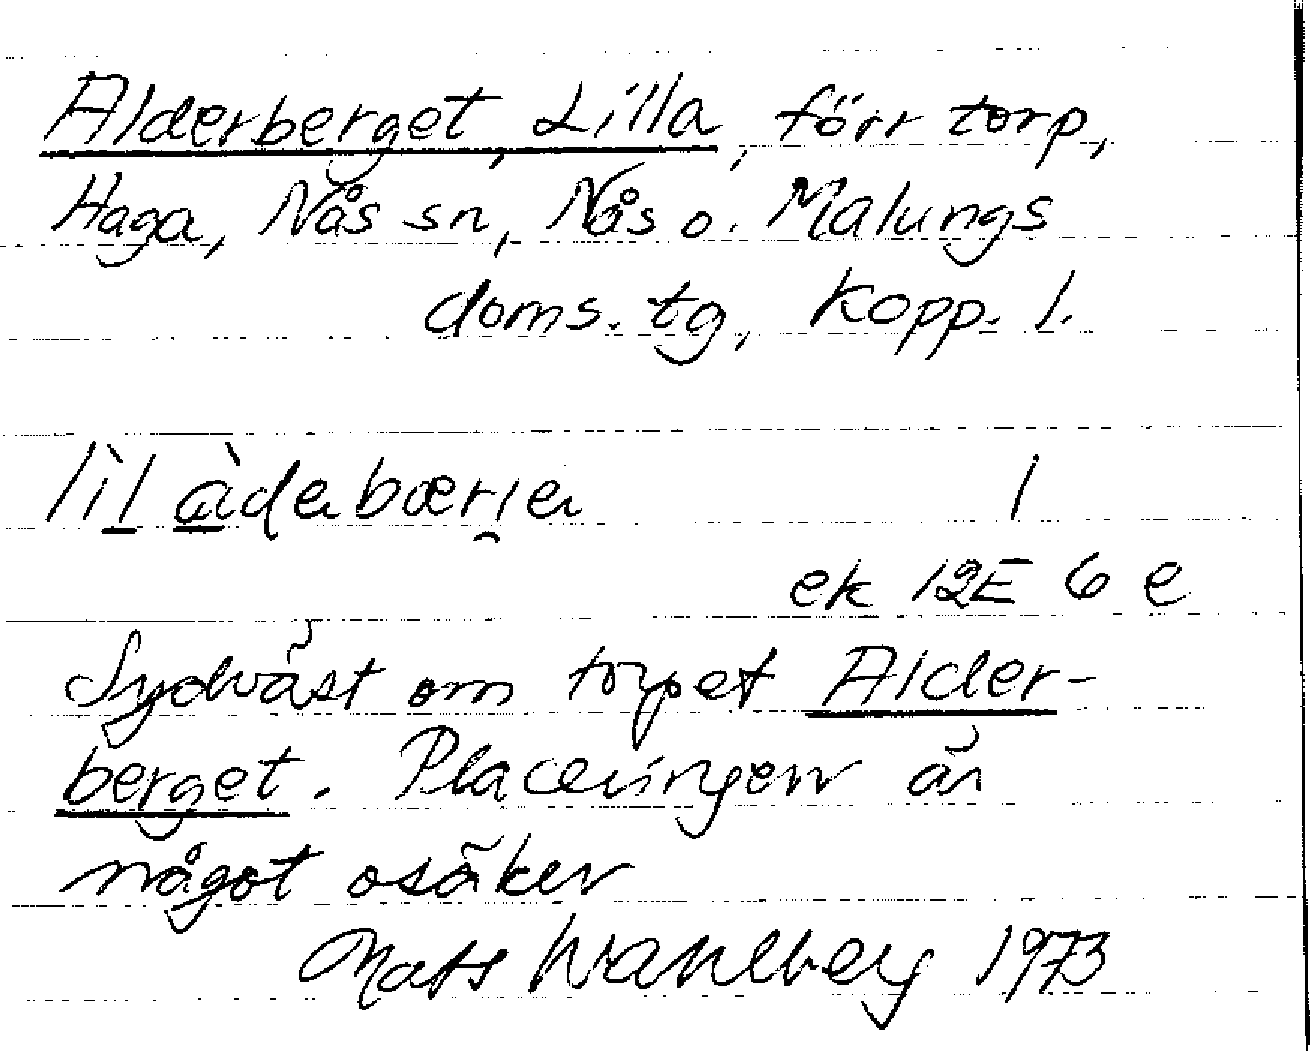 Alderberget, Lilla, förr torp,
Haga, Nås sn, Nås o. Malungs
doms. tg, Kopp. l.
lìl àdebær̯je 1
ek 12E 6 e
Sydväst om torpet Alder-
berget. Placeringen är
något osäker
Mats Wahlberg 1973